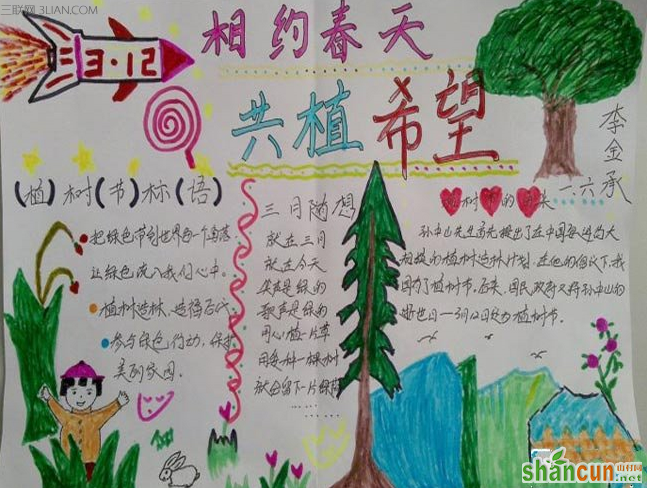 三联网 3LIAN.COM
3·12
相约春天
共植希望
李金承
一.六
(植)树(节)标(语)
把绿色带到世界每一个角落
让绿色流入我们心中。
植树造林,造福后代
参与绿色行动,保护
美丽家园。
三月随想
就在三月
就在今天
笑声是绿的
歌声是绿的
用心植一片草
用爱种一棵树
就会留下一片绿荫
……
植树节的由来
孙中山先生首先提出了在中国
植树造林计划,在他的倡议下,我
国有了植树节。后来,国民政府又将孙中山的
逝世日—3月12日定为植树节。
shancun
山村网
.net